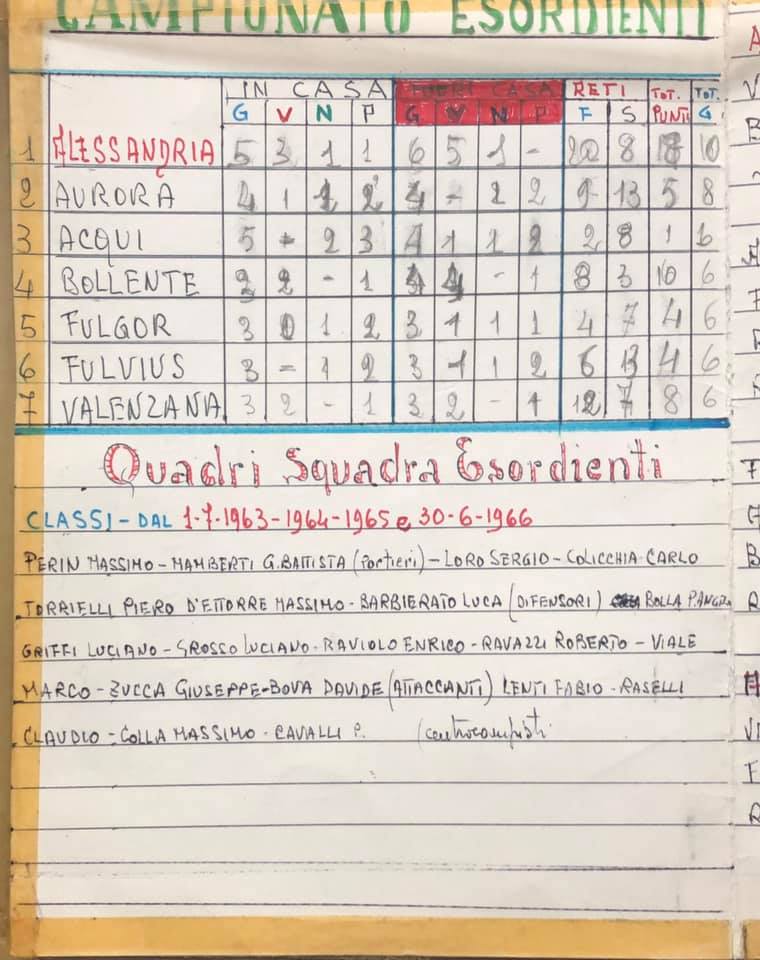 CAMPIONATO ESORDIENTI
IN CASA FUORI CASA RETI TOT. TOT.
G V N P G V N P F S PUNTI G
1 ALESSANDRIA 5 3 1 1 6 5 1 - 20 8 18 10
2 AURORA 4 1 2 4 - 2 2 9 13 5 8
3 ACQUI 5 2 3 4 1 1 2 2 8 1 6
4 BOLLENTE 2 - 1 4 - 1 8 3 10 6
5 FULGOR 3 0 1 2 3 1 1 1 4 7 4 6
6 FULVIUS 3 - 1 2 3 1 1 2 6 13 4 6
7 VALENZANA 3 2 - 1 3 2 - 1 12 7 8 6
Quadri Squadra Esordienti
CLASSI - DAL 1-7-1963-1964-1965 e 30-6-1966
PERIN MASSIMO - MAMBERTI G.BATTISTA (Portieri) - LORO SERGIO - COLICCHIA CARLO
TORRIELLI PIERO D'ETTORRE MASSIMO - BARBIERATO LUCA (DIFENSORI) BOLLA P.ANGELO
GRIFFI LUCIANO - GROSSO LUCIANO - RAVIOLO ENRICO - RAVAZZI ROBERTO - VIALE
MARCO - ZUCCA GIUSEPPE - BOVA DAVIDE (ATTACCANTI) LENTI FABIO - RASELLI
CLAUDIO - COLLA MASSIMO - CAVALLI P. (centrocampisti